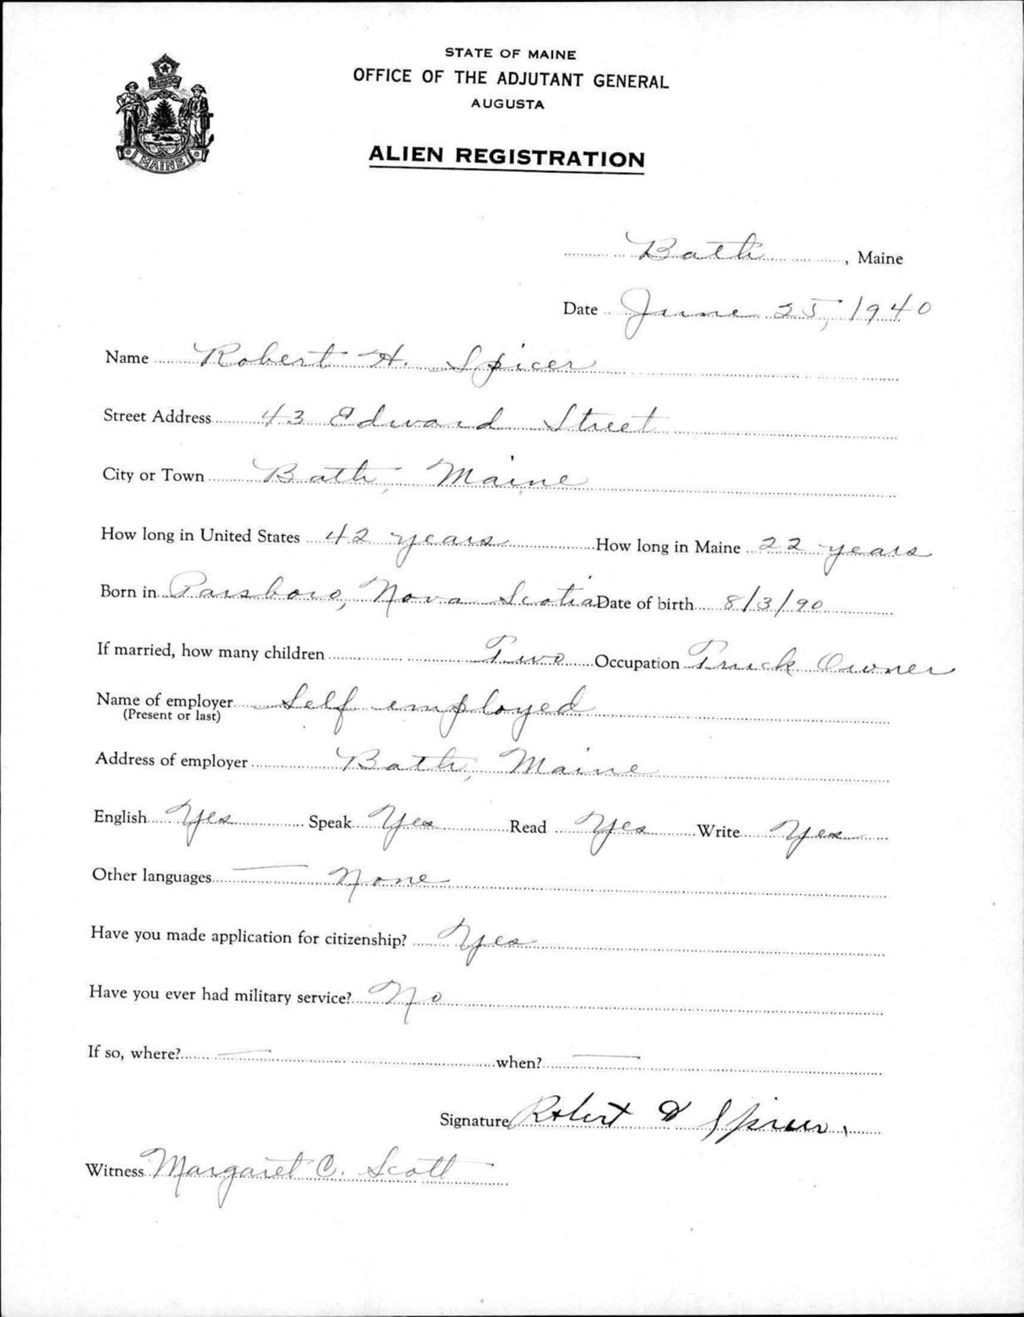 STATE OF MAINE
OFFICE OF THE ADJUTANT GENERAL
AUGUSTA
ALIEN REGISTRATION
MAINE
Bath, Maine
Date June 25, 1940
Name Robert H. Spicer
Street Address 43 Edward Street
City or Town Bath, Maine
How long in United States 42 years How long in Maine 22 years
Born in Parsboro, Nova Scotia Date of birth 8/3/90
If married, how many children Two Occupation Truck Owner
Name of employer Self employed
(Present or last)
Address of employer Bath, Maine
English Yes Speak Yes Read Yes Write Yes
Other languages — None
Have you made application for citizenship? Yes
Have you ever had military service? No
If so, where? — when? —
Signature Robert H Spicer.
Witness Margaret C. Scott